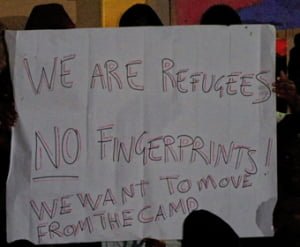 WE ARE REFUGEES
NO FINGERPRINTS!
WE WANT TO MOVE
FROM THE CAMP